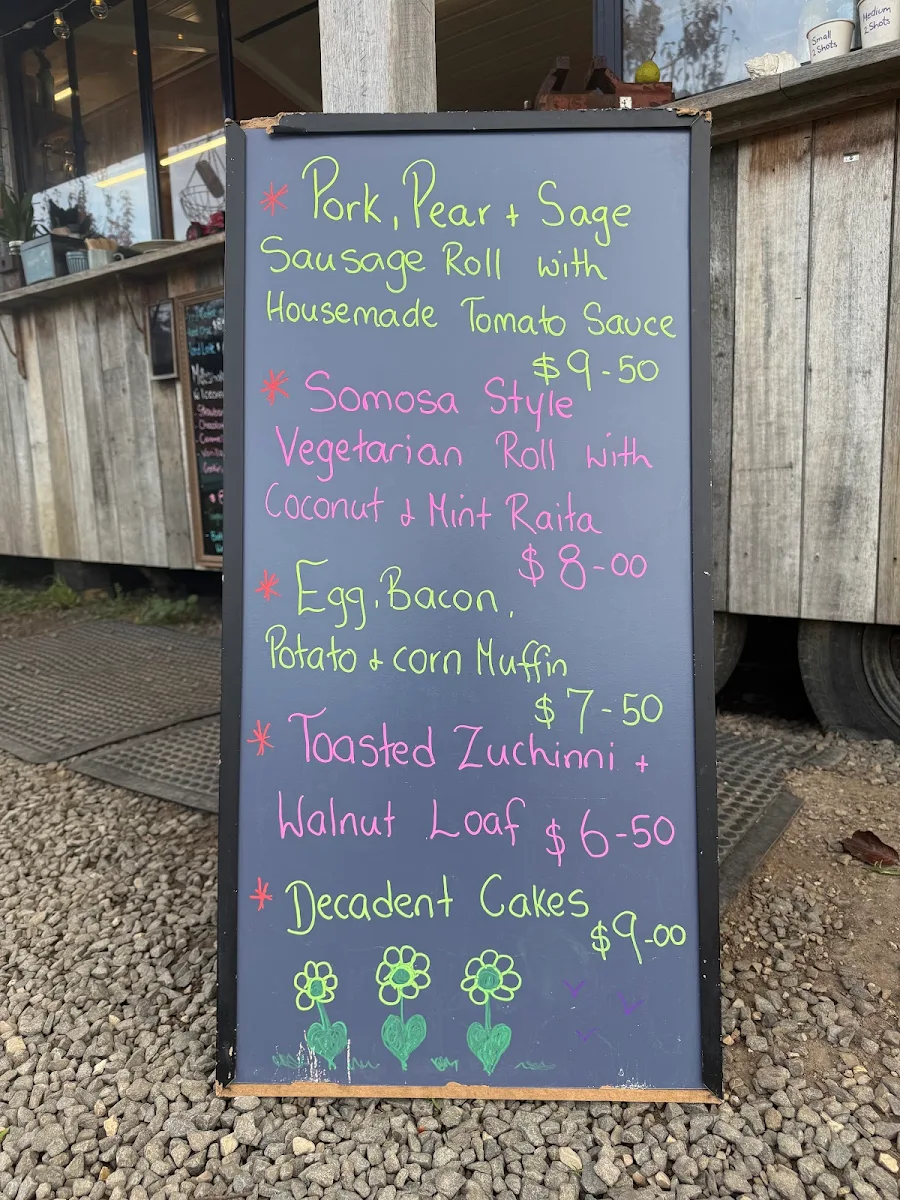 Small
2 Shots
Medium
2 Shots
* Pork, Pear + Sage
Sausage Roll with
Housemade Tomato Sauce
$9-50
* Somosa Style
Vegetarian Roll with
Coconut & Mint Raita
$8-00
* Egg, Bacon,
Potato & corn Muffin
$7-50
* Toasted Zuchinni +
Walnut Loaf $6-50
* Decadent Cakes
$9-00